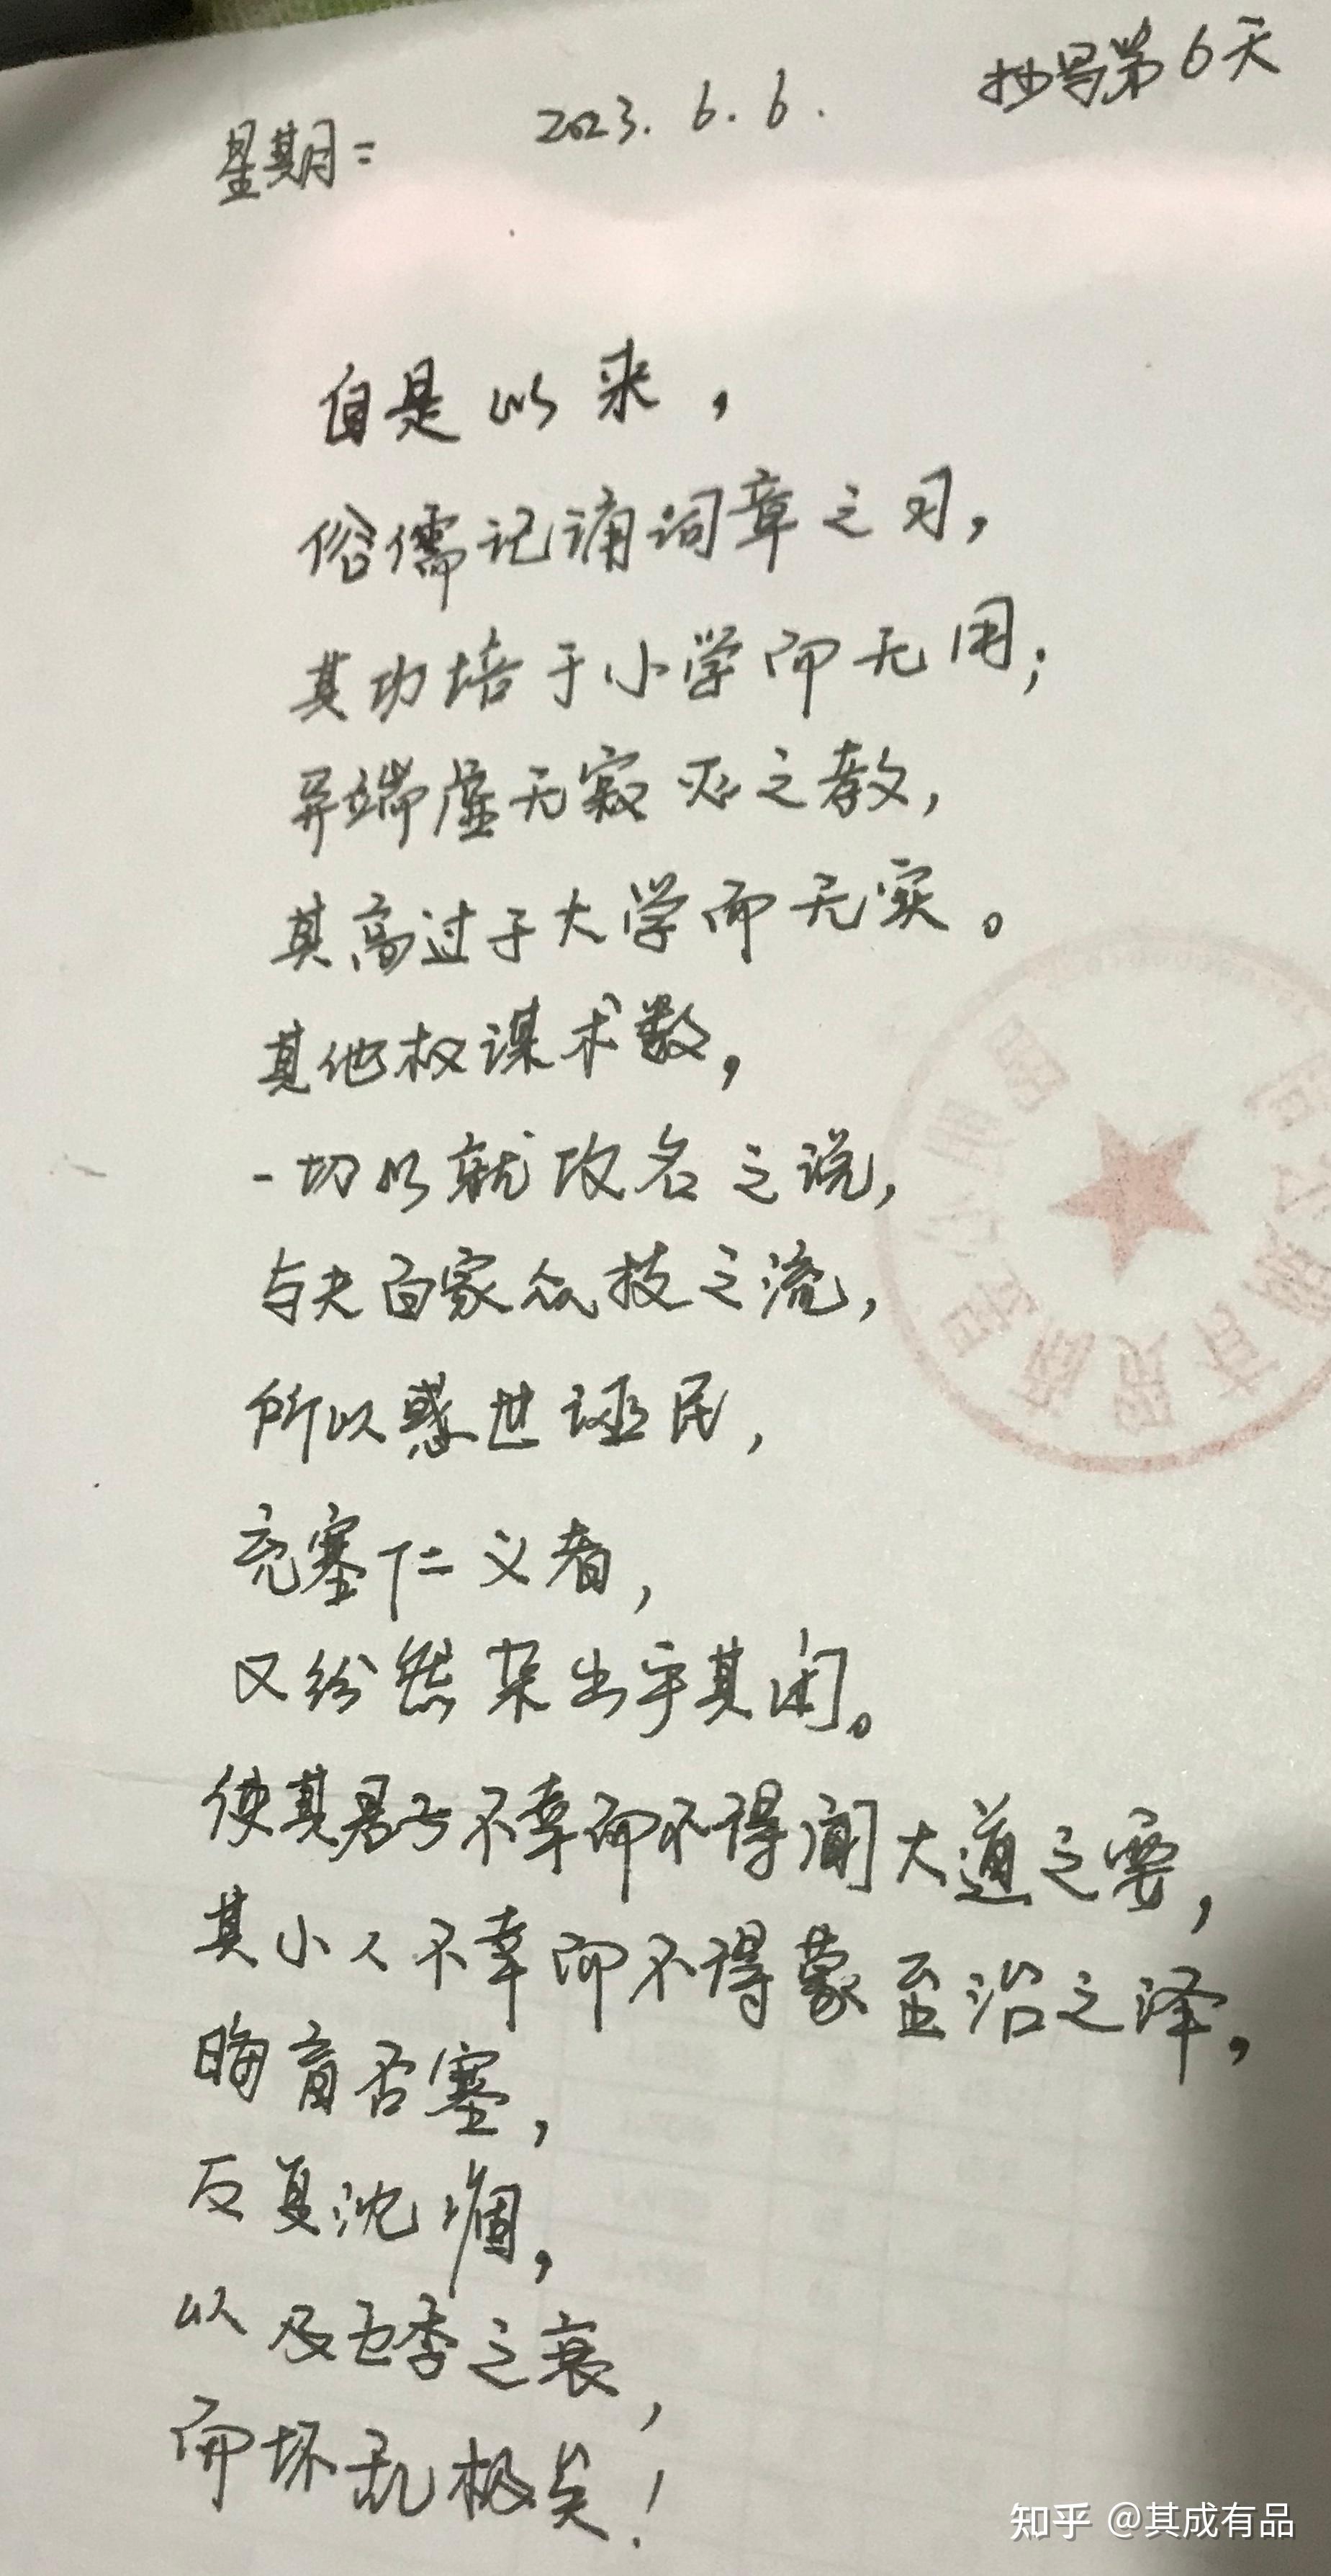 抄写第6天
星期二 2023.6.6.
自是以来，
俗儒记诵词章之习，
其功培于小学而无用；
异端虚无寂灭之教，
其高过于大学而无实。
其他权谋术数，
一切以就功名之说，
与夫百家众技之流，
所以惑世诬民，
充塞仁义者，
又纷然杂出乎其闲。
使其君子不幸而不得闻大道之要，
其小人不幸而不得蒙至治之泽，
晦盲否塞，
反复沈痼，
以及五季之衰，
而坏乱极矣！
知乎 @其成有品